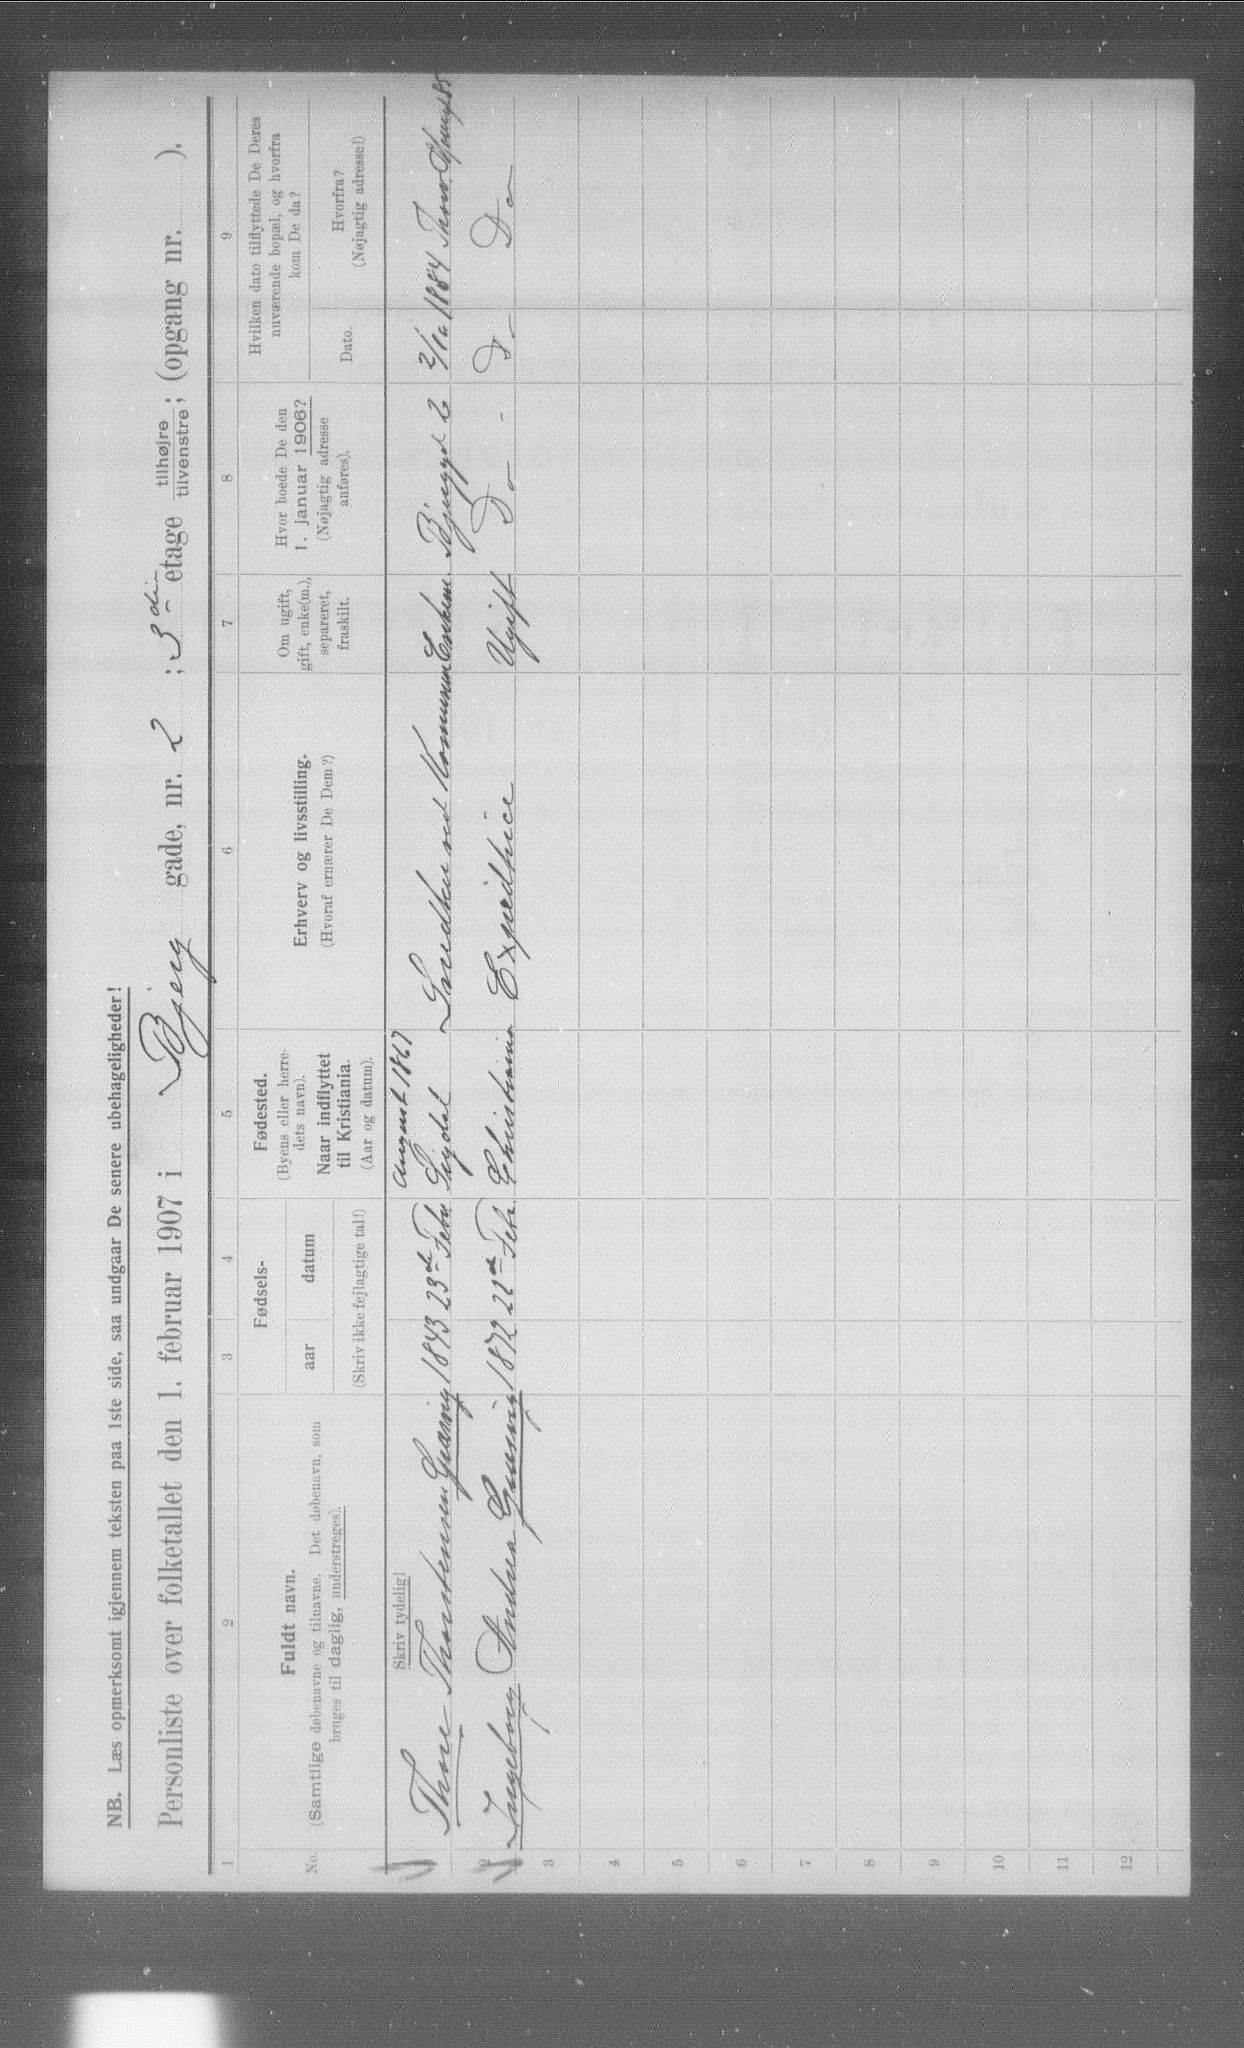 NB. Læs opmerksomt igjennem teksten paa 1ste side, saa undgaar De senere ubehageligheder!
Personliste over folketallet den 1. februar 1907 i Bjerg gade, nr. 2 ; 3die etage tilhøjre tilvenstre ; (opgang nr. ).
1 2 3 4 5 6 7 8 9
No.
Fuldt navn.
(Samtlige døbenavne og tilnavne. Det døbenavn, som
bruges til daglig, understreges).
Fødsels-
aar datum
(Skriv ikke fejlagtige tal!)
Fødested.
(Byens eller herre-
dets navn).
Naar indflyttet
til Kristiania.
(Aar og datum).
Erhverv og livsstilling.
(Hvoraf ernærer De Dem?)
Om ugift,
gift, enke(m.),
separeret,
fraskilt.
Hvor boede De den
1. januar 1906?
(Nøjagtig adresse
anføres).
Hvilken dato tilflyttede De Deres
nuværende bopæl, og hvorfra
kom De da?
Dato.
Hvorfra?
(Nøjagtig adresse!)
Skriv tydelig!
august 1867
Thore Thorstensen 1843 23de Febr Sigdal Snedker ved Kommunen Enkem. Bjerggd 2 2/10 1884 Thorv.
2 Ingeborg Andrea 1872 22de Febr. Christiania Expeditrice Ugift Do - Do Do
3
4
5
6
7
8
9
10
11
12